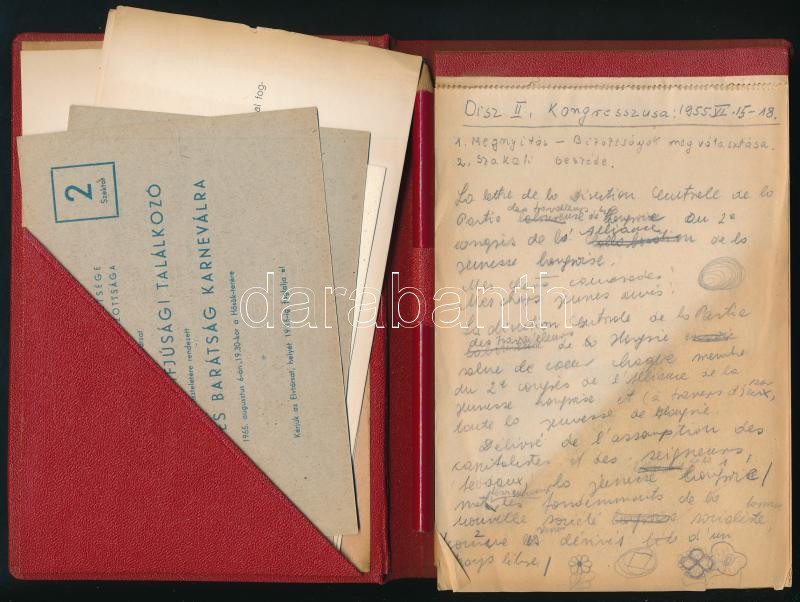 al fog-
2
Szektor
TSÉGE
ZOTTSÁGA
IFJÚSÁGI TALÁLKOZÓ
tiszteletére rendezett
ÉS BARÁTSÁG KARNEVÁLRA
1965. augusztus 6-án, 19.30-kor a Hősök-terére
Kérjük az Elvtársat, helyét 19.15-ig foglalja el
darabanth
Disz II. Kongresszusa: 1955. VI. 15-18.
1. Megnyitás – Bizottságok megválasztása.
2. Szakali beszéde.
La lettre de la Direction Centrale de la
des travailleurs
Partie de Hongrie au 2e
Alliance
congrès de la de la
jeunesse hongroise.
camarades!
Mes chers jeunes amis!
La direction centrale de la Partie
des travailleurs
de la Hongrie
salue de coeur chaque membre
du 2e congrès de l'Alliance de la
jeunesse hongroise et (à travers d'eux,
toute la jeunesse de Hongrie.
Délivré de l'assomption des
capitalistes et des seigneurs
feodaux, la jeunesse hongroise
met les fondements de la
nouvelle société socialiste,
comme dérivés d'un
pays libre